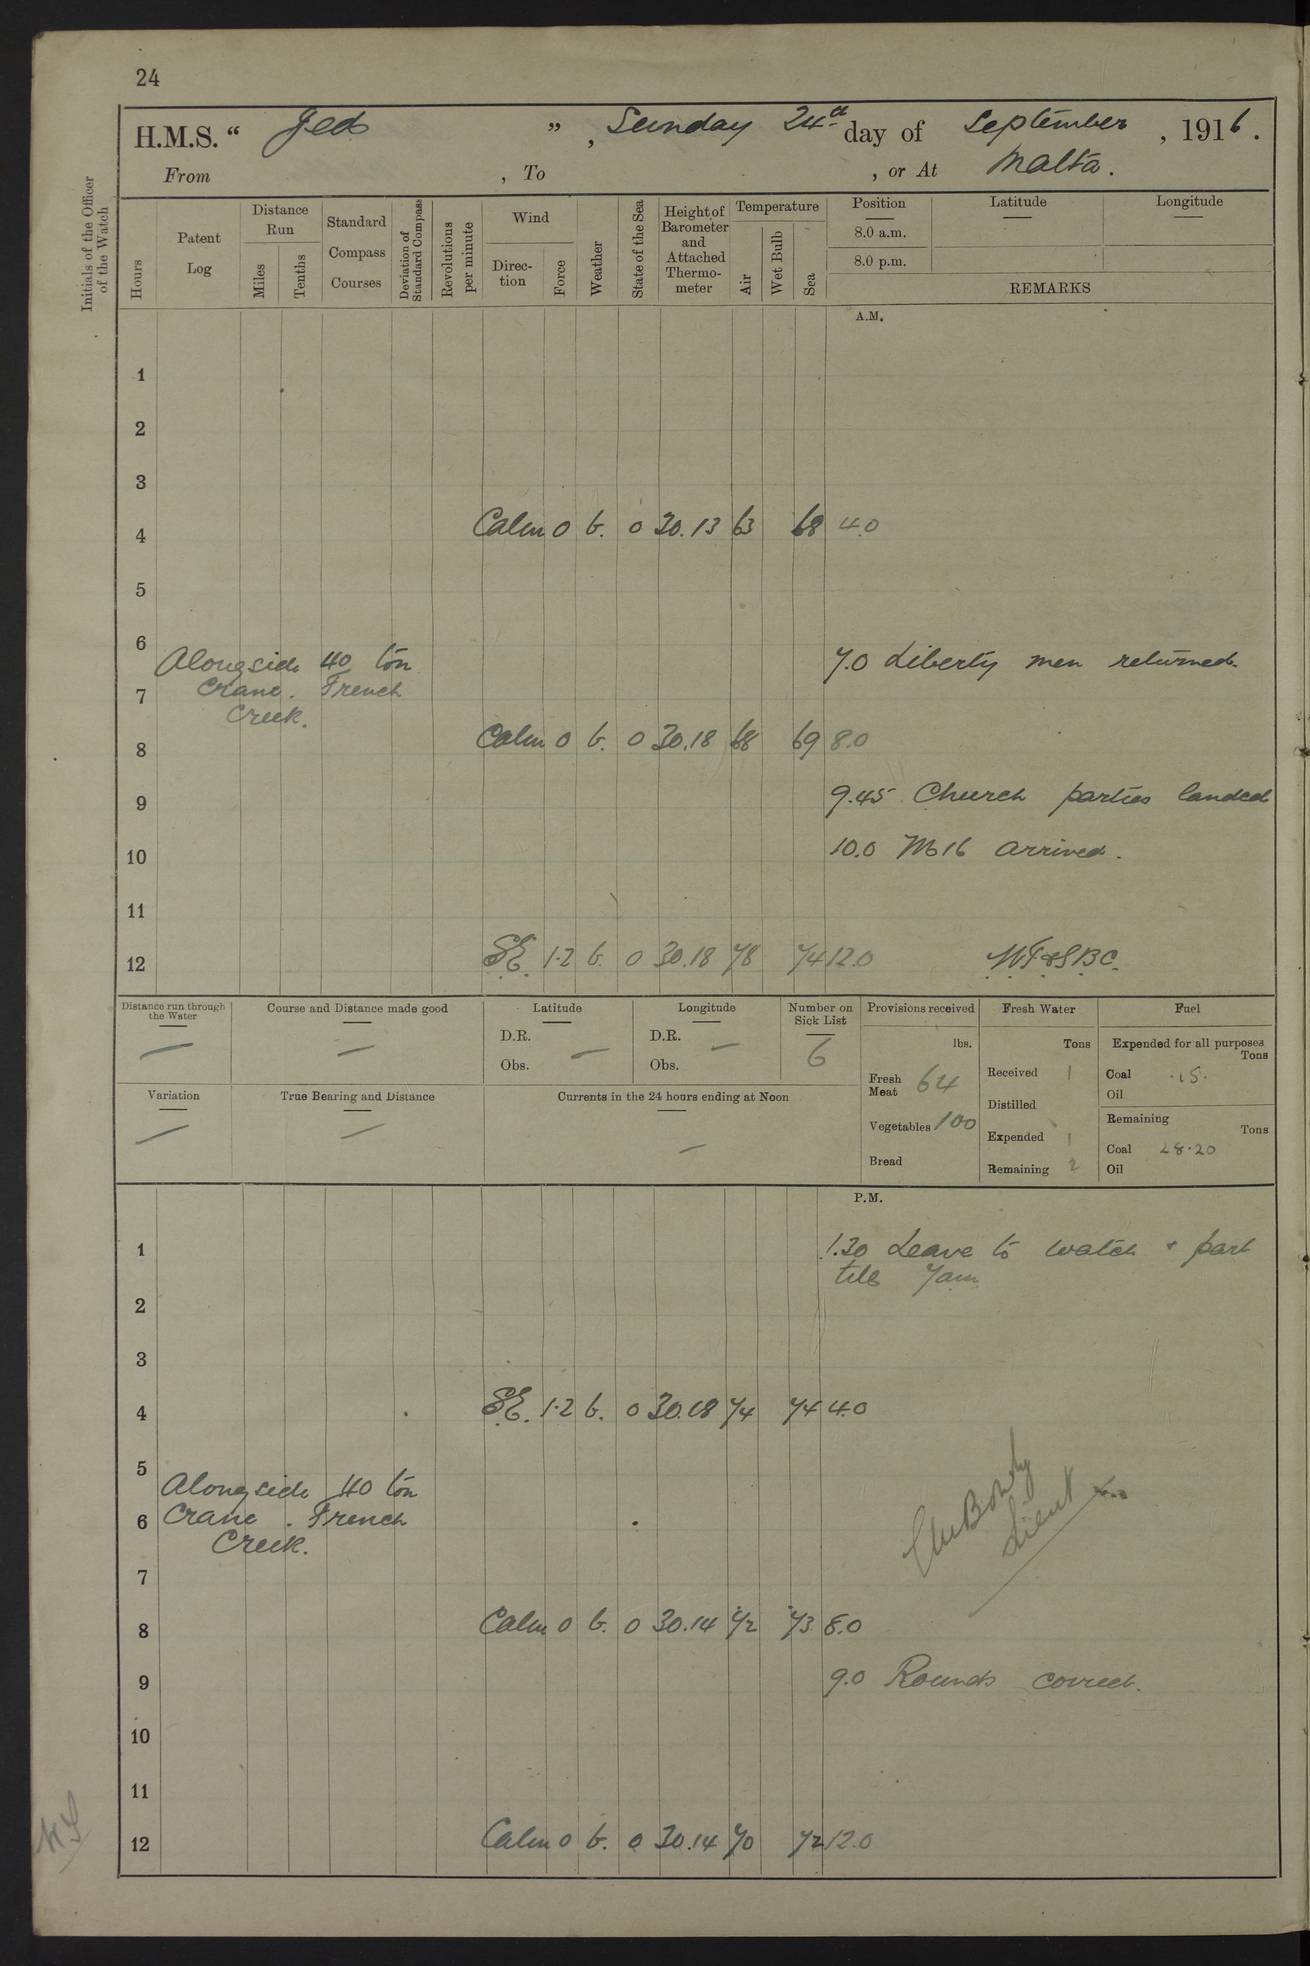 24
H.M.S. “ Jed ” , Sunday 24th day of September , 1916 .
From , To , or At Malta.
Initials of the Officer of the Watch
Hours
Patent Log
Distance Run
Miles
Tenths
Standard Compass Courses
Deviation of Standard Compass
Revolutions per minute
Wind
Direc-tion
Force
Weather
State of the Sea
Height of Barometer and Attached Thermo-meter
Temperature
Air
Wet Bulb
Sea
Position Latitude Longitude
8.0 a.m.
8.0 p.m.
REMARKS
A.M.
1
2
3
4 Calm 0 b. 0 30.13 63 68 4.0
5
6
Alongside 40 ton 7.0 Liberty men returned.
7 Crane. French
Creek.
8 Calm 0 b. 0 30.18 68 69 8.0
9 9.45 Church parties landed
10 10.0 M16 arrived.
11
12 SE. 1.2 b. 0 30.18 78 74 12.0
Distance run through the Water
—
Course and Distance made good
—
Latitude
D.R.
Obs. —
Longitude
D.R.
Obs. —
Number on Sick List
6
Provisions received
lbs.
Fresh Meat 64
Vegetables 100
Bread
Fresh Water
Tons
Received 1
Distilled
Expended 1
Remaining 2
Fuel
Expended for all purposes
Tons
Coal .15.
Oil
Remaining
Tons
Coal 28.20
Oil
Variation
—
True Bearing and Distance
—
Currents in the 24 hours ending at Noon
—
P.M.
1 1.30 Leave to watch + part
till 7am
2
3
4 SE. 1.2 b. 0 30.18 74 74 4.0
5
Alongside 40 ton
6 Crane. French
Creek.
Lieut
7
8 Calm 0 b. 0 30.14 72 73 8.0
9 9.0 Rounds correct.
10
11
12 Calm 0 b. 0 30.14 70 72 12.0